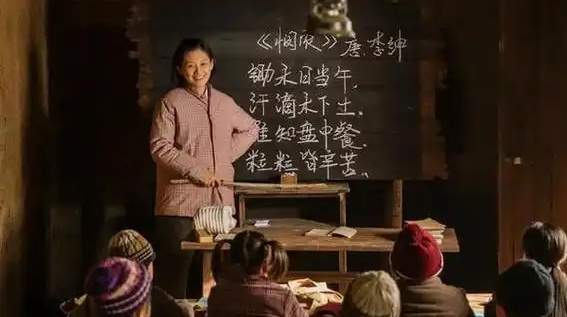 《悯农》唐.李绅
锄禾日当午,
汗滴禾下土.
谁知盘中餐.
粒粒皆辛苦.